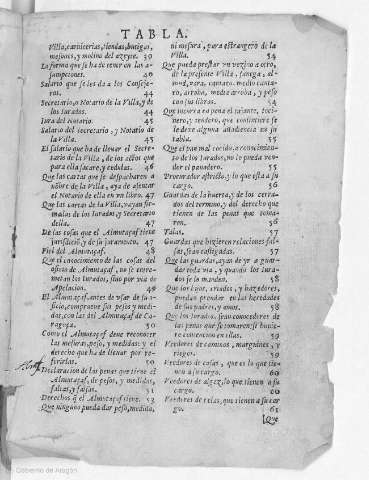 TABLA.
Villa, carnicerias, tiendas, botigas,
mesones, y molino del azeyte. 39
La forma que se ha de tener en las a-
sumpciones. 40
Salario que se les da a los Conseje-
ros. 44
Secretario, o Notario de la Villa, y de
los Iurados. 44
Iura del Notario. 45
Salario del secretario, y Notario de
la Villa. 45
El salario que ha de llevar el Secre-
tario de la Villa, de los actos que
para ella sacare, y cedulas. 46
Que las cartas que se despacharen a
nõbre de la Villa, aya de assentar
el Notario de ella en un libro. 47
Que las cartas de la Villa, vayan fir-
madas de los Iurados, y Secretario
della. 47
De las cosas que el Almutaçaf tiene
jurisdiciõ, y de su juramento. 47
Fiel del Almutaçaf. 48
Que el conocimiento de las cosas del
oficio de Almutaçaf, no se entre-
metan los Iurados, sino por via de
Apelacion. 49
El Almutaçaf, antes de vsar de su o-
ficio, comprueve sus pesos, y me-
didas, con las del Almutaçaf de Ca-
ragoça. 50
Como el Almutaçaf deve reconocer
las mesuras, peso, y medidas: y el
derecho que ha de llevar por re-
ferirlas. 50
Declaracion de las penas que tiene el
Almutaçaf, de pesos, y medidas,
falsas, y falsas. 51
Derechos q̃ el Almutaçaf tiene. 53
Que ninguno pueda dar peso, medida,
ni mesura, para estrangero de la
Villa. 54
Que pueda prestar un vezino a otro,
de la presente Villa, fanega, al-
mud, vara, cantaro, medio canta-
ro, arroba, media arroba, y peso
con sus libras. 54
Que incurra en pena el tajante, toci-
nero, y tendero, que continuare se
le deve alguna añadencia en su
tabla. 55
Que el pan mal cocido, a conocimien-
to de los Iurados, no lo pueda ven-
der el panadero. 55
Procurador astricto, y lo que està a su
cargo. 56
Guardas de la huerta, y de los cerra-
dos del termino, y del derecho que
tienen de las penas que toma-
ren. 56
Talas. 57
Guardas que hizieren relaciones fal-
sas, sean castigadas. 57
Que las guardas, ayan de yr a guar-
dar toda via, y quando los Iura-
dos se lo manden. 58
Que los hijos, criados, y hazedores,
puedan prendar en las heredades
de sus padres, y amos. 58
Que los Iurados, sean conocedores de
las penas que se tomaren si huvie-
re convencion en ellas. 59
Veedores de caminos, marguines, y
riegos. 59
Veedores de casas, que es lo que tie-
nen a su cargo. 60
Veedores de algez, lo que tienen a su
cargo. 60
Veedores de telas, que tienen a su car-
go. 61
[Que
© Gobierno de Aragón